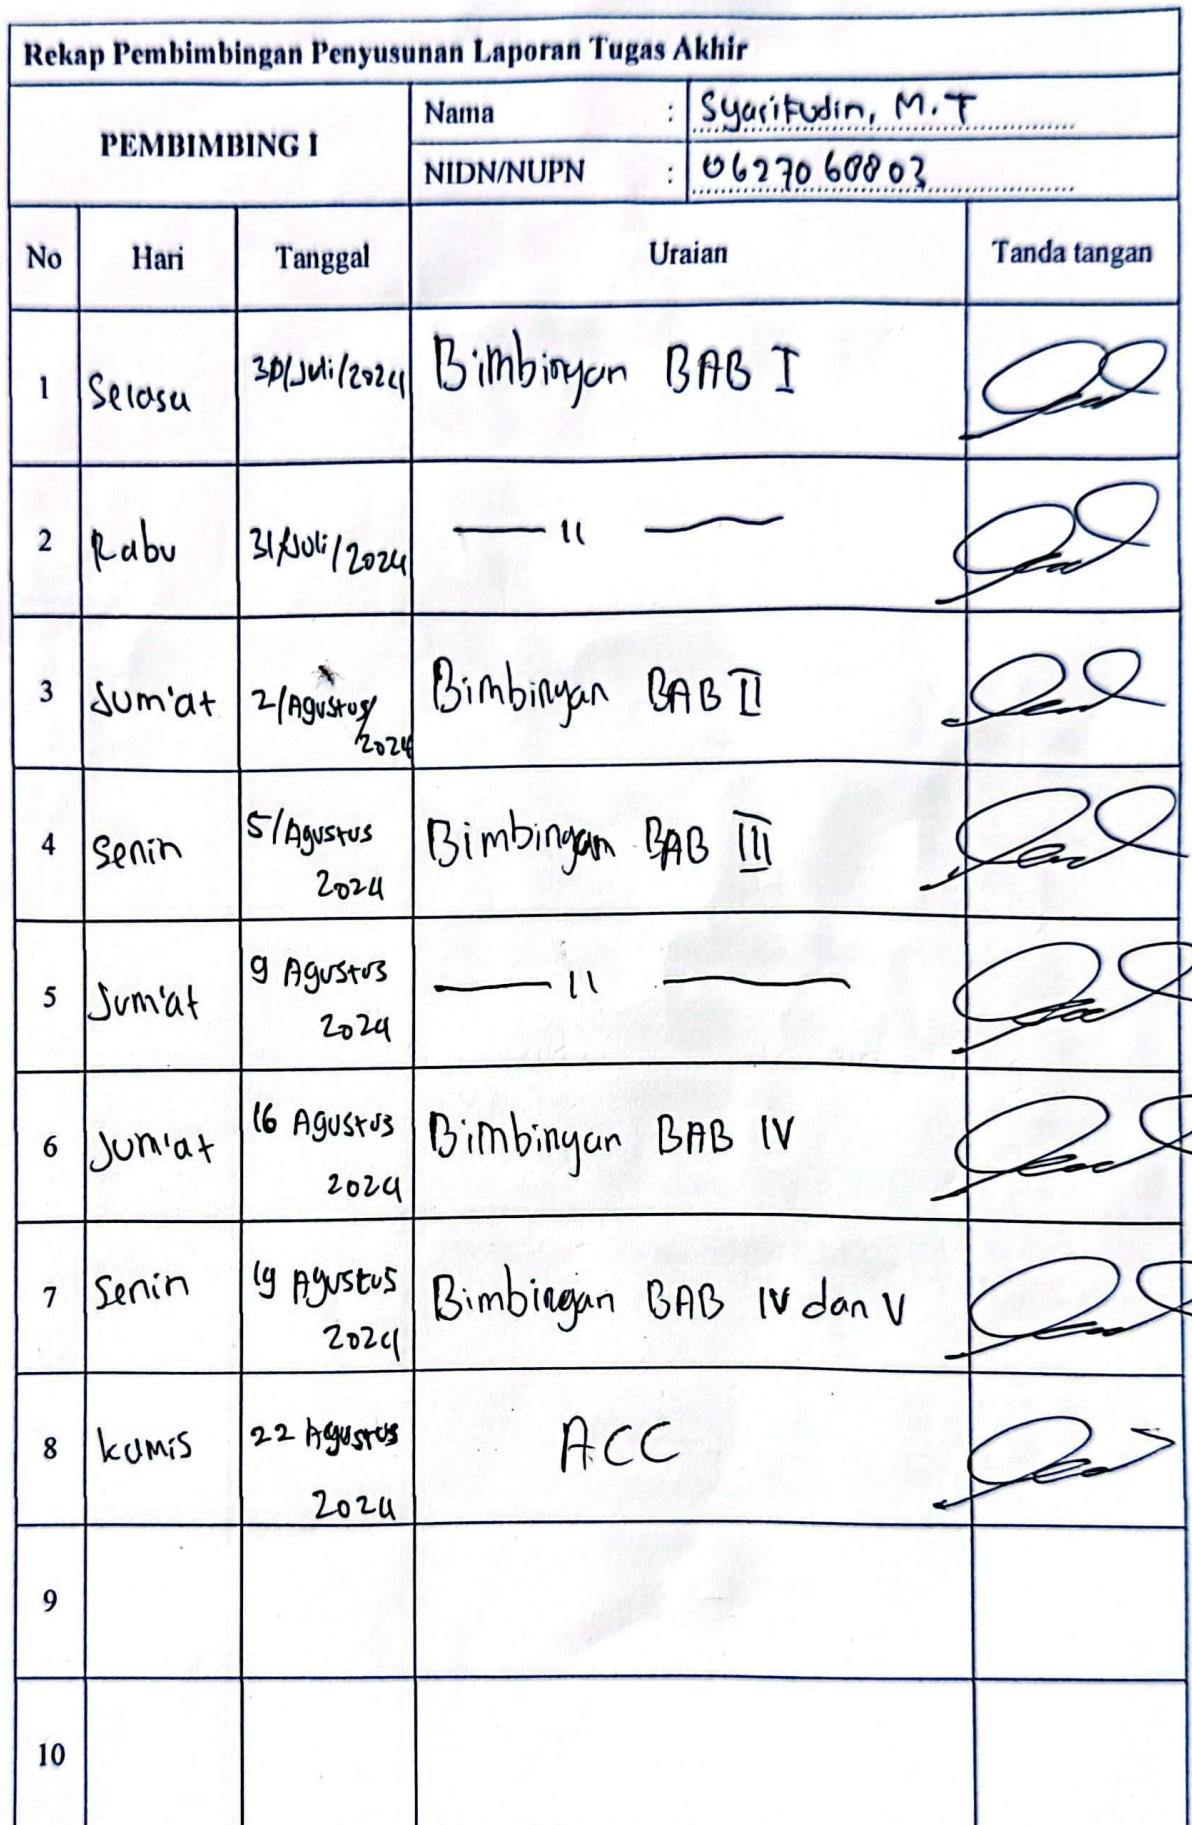 Rekap Pembimbingan Penyusunan Laporan Tugas Akhir
PEMBIMBING I
Nama : Syarifudin, M.T
NIDN/NUPN : 0627068803
No Hari Tanggal Uraian Tanda tangan
1 Selasa 30/Juli/2024 Bimbingan BAB I
2 Rabu 31/Juli/2024 —— 11 ——
3 Jum'at 2/Agustus/
2024 Bimbingan BAB II
4 Senin 5/Agustus
2024 Bimbingan BAB III
5 Jum'at 9 Agustus
2024 —— 11 ——
6 Jum'at 16 Agustus
2024 Bimbingan BAB IV
7 Senin 19 Agustus
2024 Bimbingan BAB IV dan V
8 kamis 22 Agustus
2024 ACC
9
10